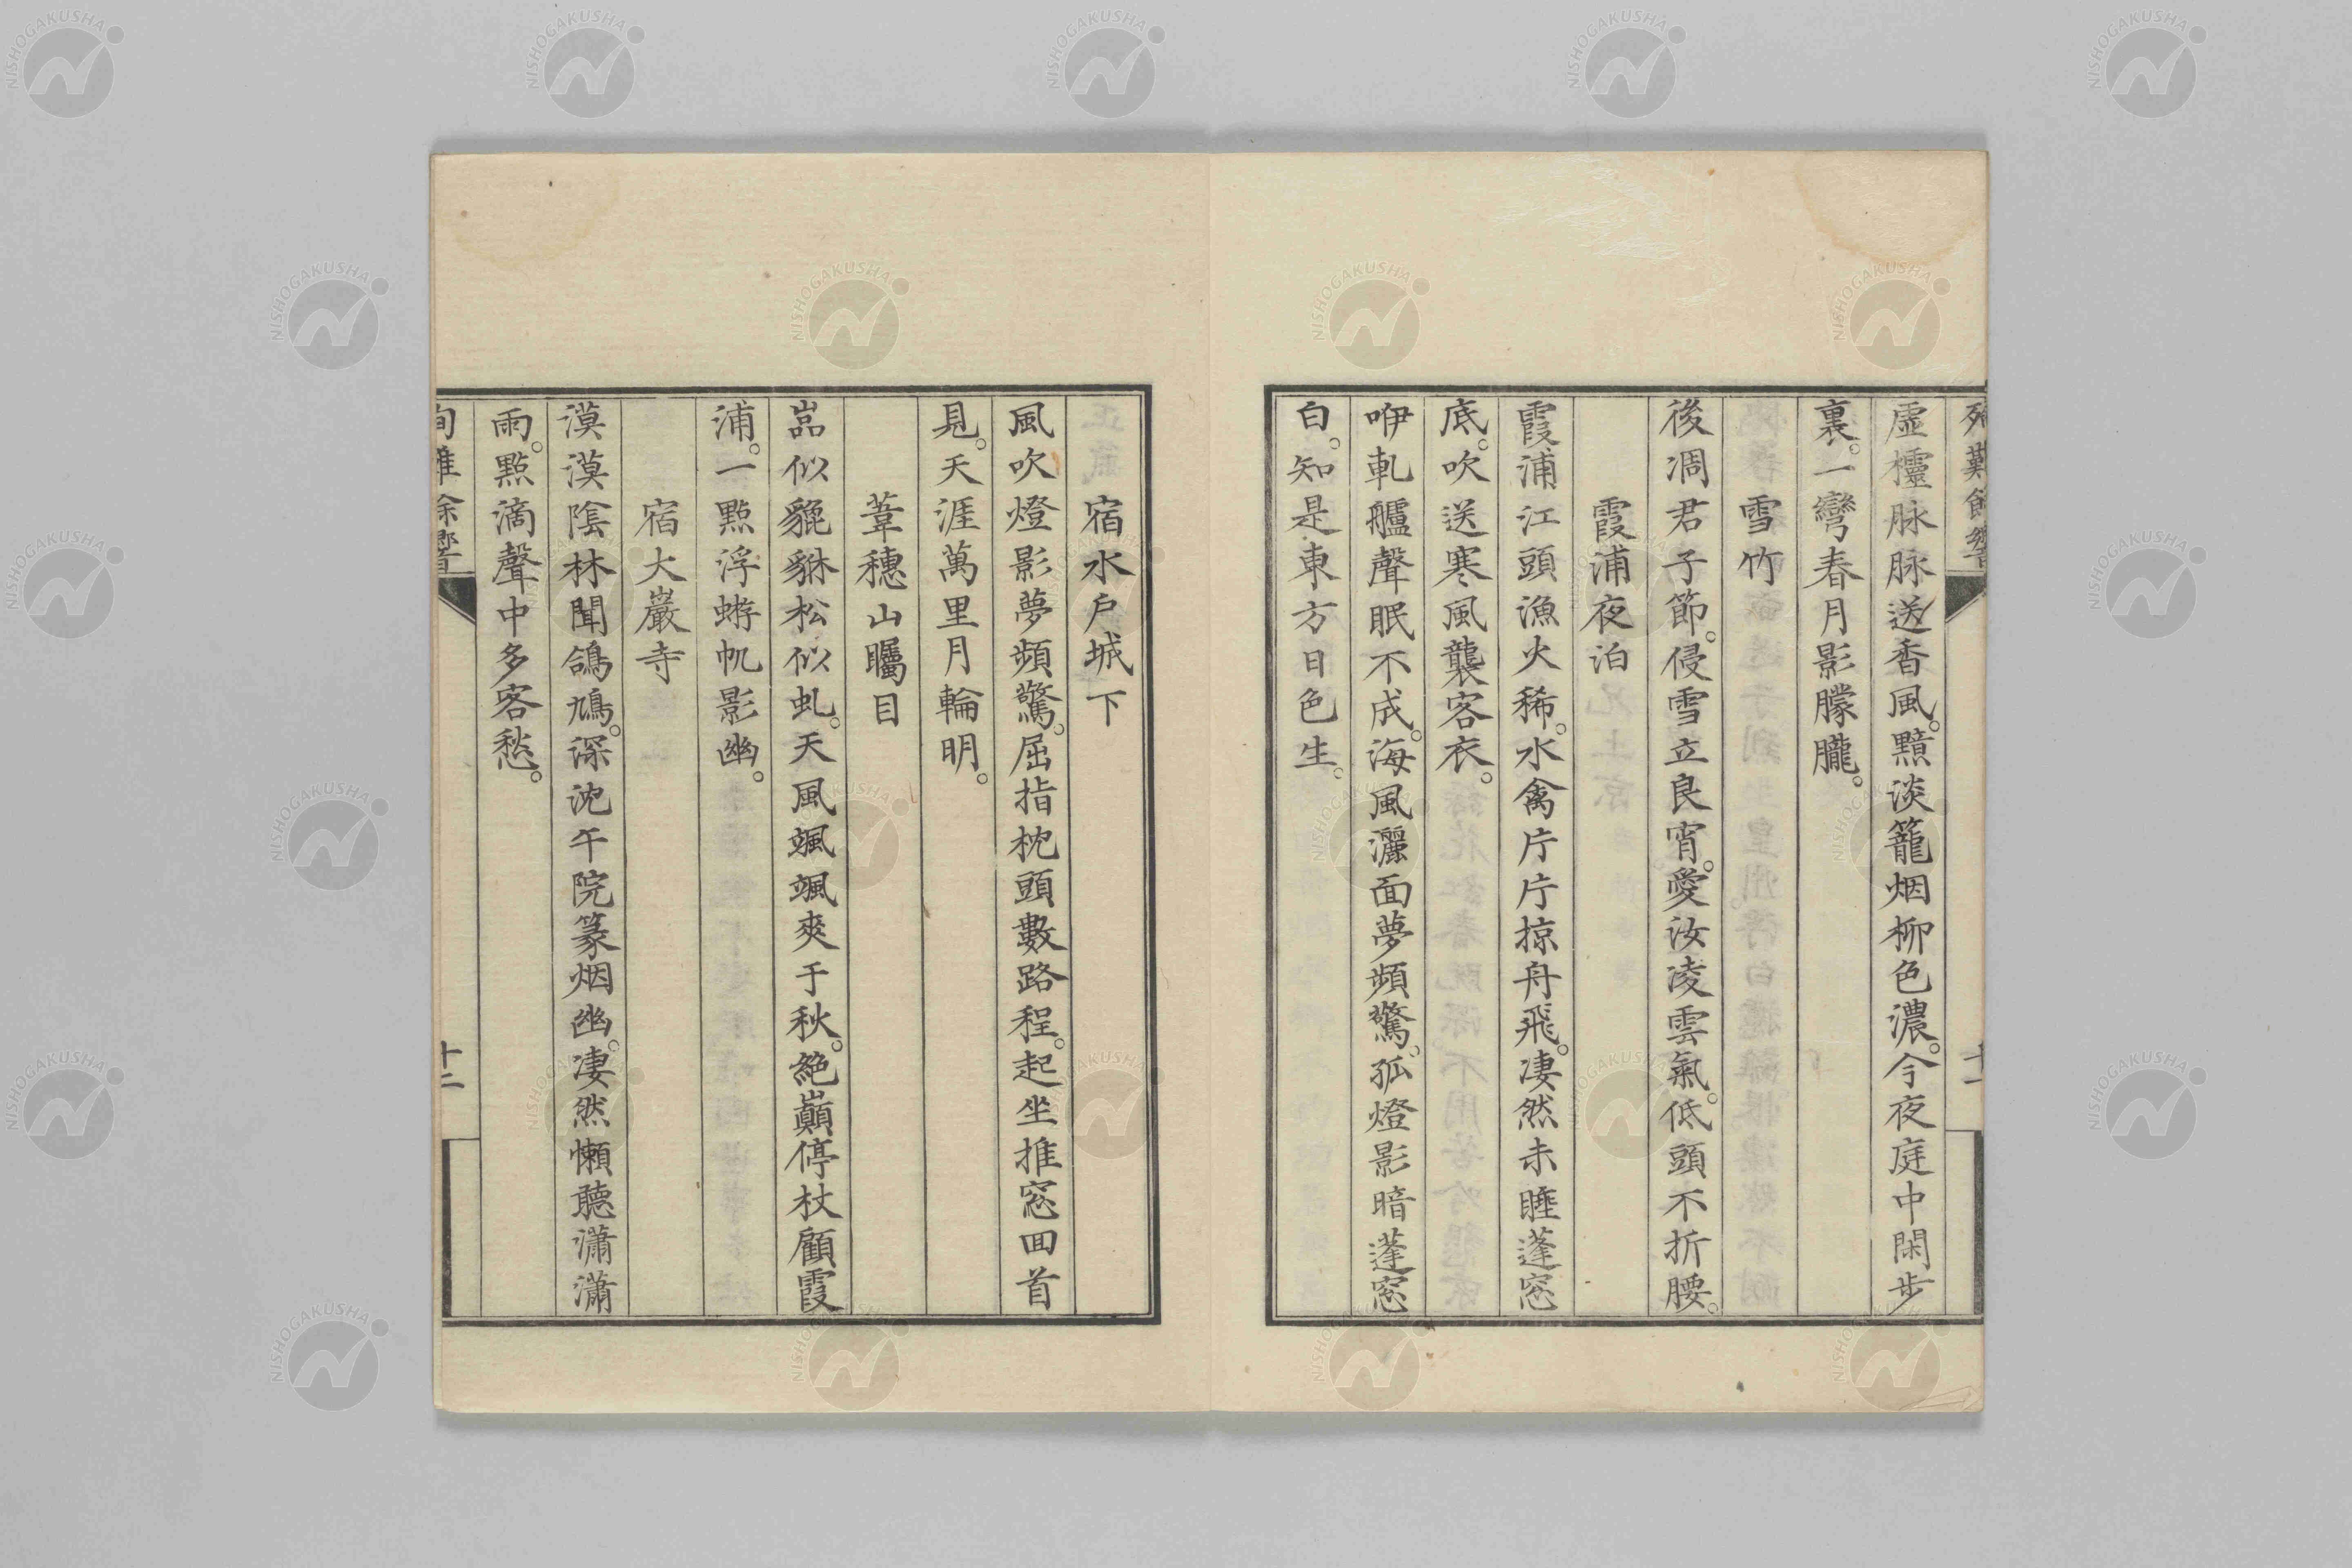 虛櫺脉脉送香風。黯淡籠烟柳色濃。今夜庭中閑步
裏。一彎春月影朦朧。
雪竹
後凋君子節。侵雪立良宵。愛汝凌雲氣。低頭不折腰。
霞浦夜泊
霞浦江頭漁火稀。水禽片片掠舟飛。凄然未睡蓬窓
底。吹送寒風襲客衣。
咿軋艫聲眠不成。海風灑面夢頻驚。孤燈影暗蓬窓
白。知是東方日色生。
十一
宿水戶城下
風吹燈影夢頻驚。屈指枕頭數路程。起坐推窓回首
見。天涯萬里月輪明。
葦穗山矚目
嵓似貔貅松似虬。天風颯颯爽于秋。絕巔停杖顧霞
浦。一點浮蝣帆影幽。
宿大巖寺
漠漠陰林聞鴿鳩。深沈午院篆烟幽。凄然懶聽瀟瀟
雨。點滴聲中多客愁。
十二
NISHOGAKUSHA